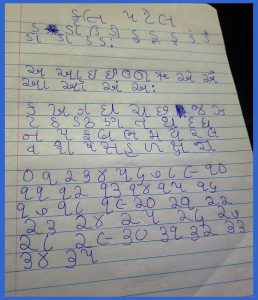 પટેલ
ક કા કિ કી કુ કૂ કે કૈ
કો કૌ કં કઃ
અ આ ઇ ઈ ઉ ઊ ઋ એ ઐ
ઓ ઔ અં અઃ
ક ખ ગ ઘ ચ છ જ ઝ
ટ ઠ ડ ઢ ણ ત થ દ ધ
ન પ ફ બ ભ મ ય ર લ
વ શ ષ સ હ ળ ક્ષ જ્ઞ
૦ ૧ ૨ ૩ ૪ ૫ ૬ ૭ ૮ ૯ ૧૦
૧૧ ૧૨ ૧૩ ૧૪ ૧૫ ૧૬
૧૭ ૧૮ ૧૯ ૨૦ ૨૧ ૨૨
૨૩ ૨૪ ૨૫ ૨૬ ૨૭
૨૮ ૨૯ ૩૦ ૩૧ ૩૨ ૩૩
૩૪ ૩૫